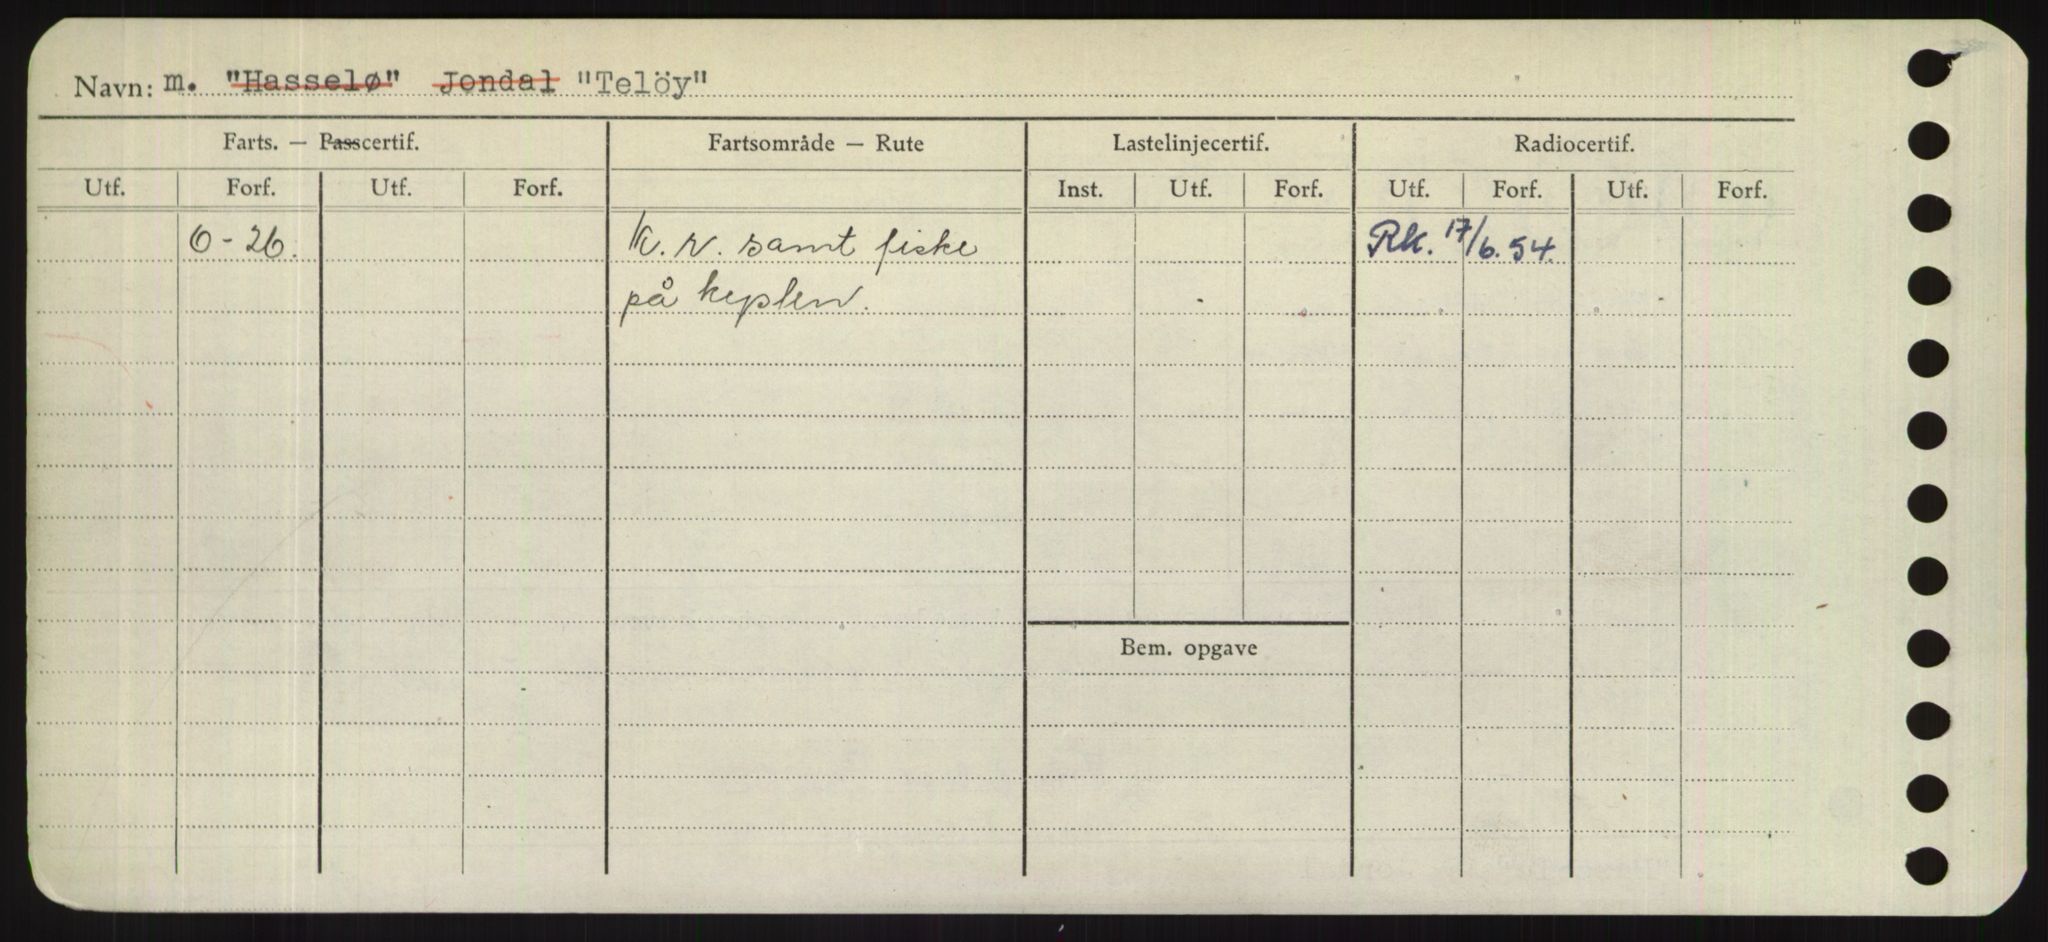 Navn: m. "Hasselø" Jondal "Telöy"
Farts. — Passcertif. Fartsområde — Rute Lastelinjecertif. Radiocertif.
Utf. Forf. Utf. Forf. Inst. Utf. Forf. Utf. Forf. Utf. Forf.
6-26. K.r. samt fiske Rk. 17/6.54.
på kysten.
Bem. opgave